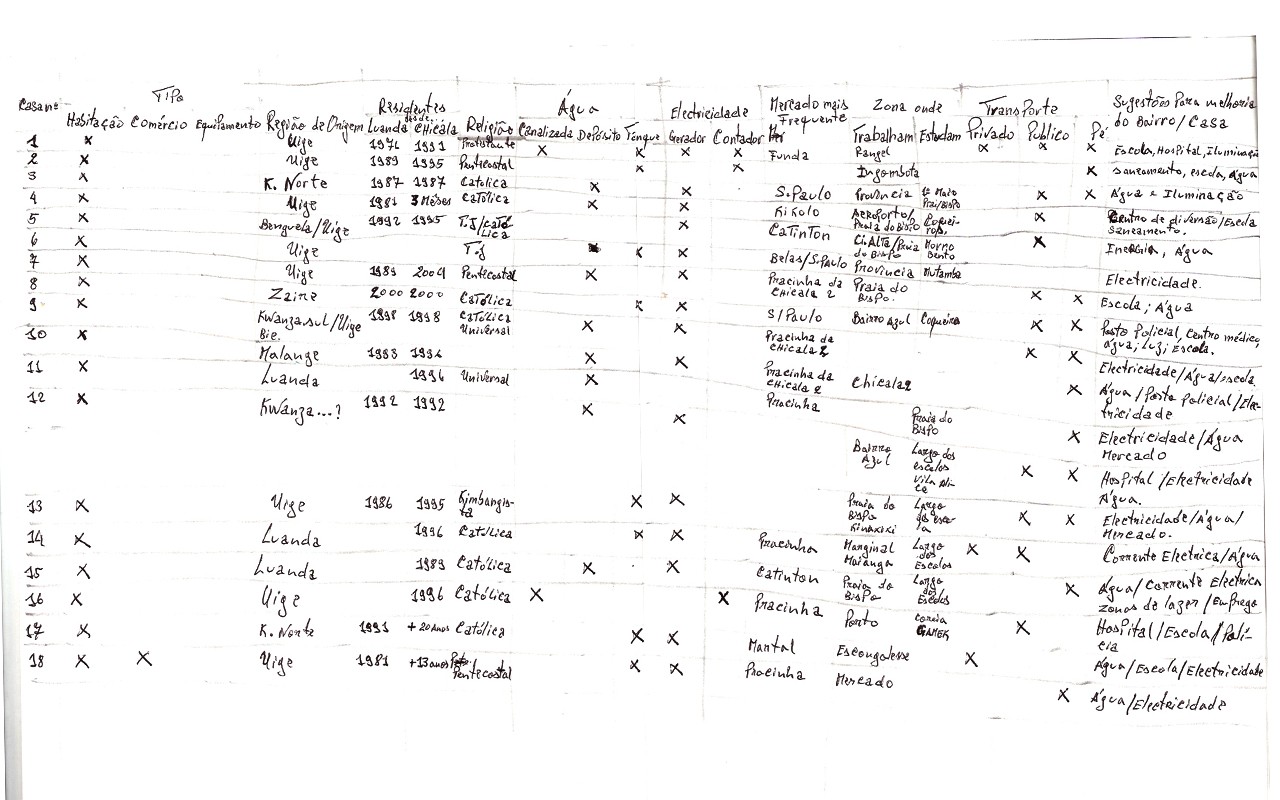 Casa nº Tipo Residentes desde: Água Electricidade Mercado mais Frequente Zona onde Transporte Sugestões Para melhoria do Bairro/Casa
Habitação Comércio Equipamento Região de Origem Luanda Chicála Religião Canalizada Depósito Tanque Gerador Contador Trabalham Estudam Privado Publico Pé
1 X Uige 1976 1991 Protistante X X X X Funda Rangel X X X Escola, Hospital, Iluminação
2 X Uige 1989 1995 Pentecostal X X Ingombota X saneamento, escola, água
3 X K. Norte 1987 1987 Catolica X X S.Paulo Província 1º Maio Prai/Bispo X X Água e Iluminação
4 X Uige 1981 3 Meses Católica X Kikolo Aeroporto/Praia do Bispo X Centro de diversão/Escola saneamento.
5 X Benguela/Uige 1992 1995 T.J/Católica X Catinton Ci.Alta/Praia do Bispo Morro Bento X Inergia, Água
6 X Uige T.J X X X Belas/S.Paulo Província Mutamba Electricidade.
7 X Uige 1989 2001 Pentecostal X X Pracinha da Chicala 2 Praia do Bispo. X X Escola; Água
8 X Zaire 2000 2000 Católica X X S/Paulo Bairro Azul Coqueiro X X Posto Policial, Centro médico, água; Luz; Escola.
9 X Kwanza sul/Uige Bie. 1998 1998 Católica Universal X X Pracinha da Chicala 2 X X Electricidade/Água/escola
10 X Malange 1983 1994 X X Pracinha da Chicala 2 Chicala 2 X Água/Posto Policial/Electricidade
11 X Luanda 1996 Universal X Pracinha Praia do Bispo X Electricidade/Água Mercado
12 X Kwanza...? 1992 1992 X X Bairro Azul Largo das escolas Vila Alice X X Hospital/Electricidade Água.
13 X Uige 1986 1995 Kimbanguista X X Praia do Bispo Kinaxixi Largo das escola X X Electricidade/Água/Mercado.
14 X Luanda 1996 Católica X X Pracinha Marginal Maianga Largo das Escolas X X Corrente Electrica/Água
15 X Luanda 1989 Católica X X Catinton Praia do Bispo Largo das Escolas X Água/Corrente Electrica zonas de lazer/Emprego
16 X Uige 1996 Católica X X Pracinha Porto Correia GAMEK X Hospital/Escola/Policia
17 X K. Norte 1991 +20 anos Católica X X Mantal Escongolesse X Água/Escola/Electricidade
18 X X Uige 1981 +13 anos Pentecostal X X Pracinha Mercado X Água/Electricidade